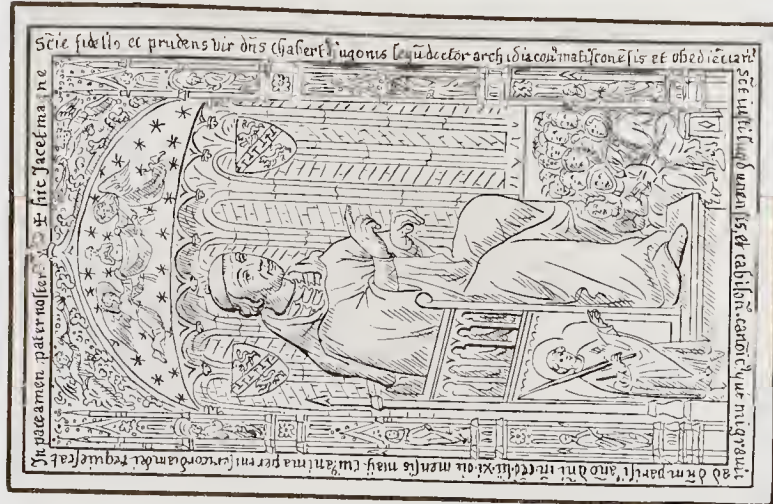 ✠ hic Jacet ma. ne
Scīe fidelis et prudens vir dñs Chabert hugonis legū doctor archidiacon' matisconēsis et obediētiari'
scti iusti et cabilon. canoic' qui migravit
ad dñm parisii año dñi mensis maij cui' anima per misericordiam dei requiescat
In pace amen pater noster.